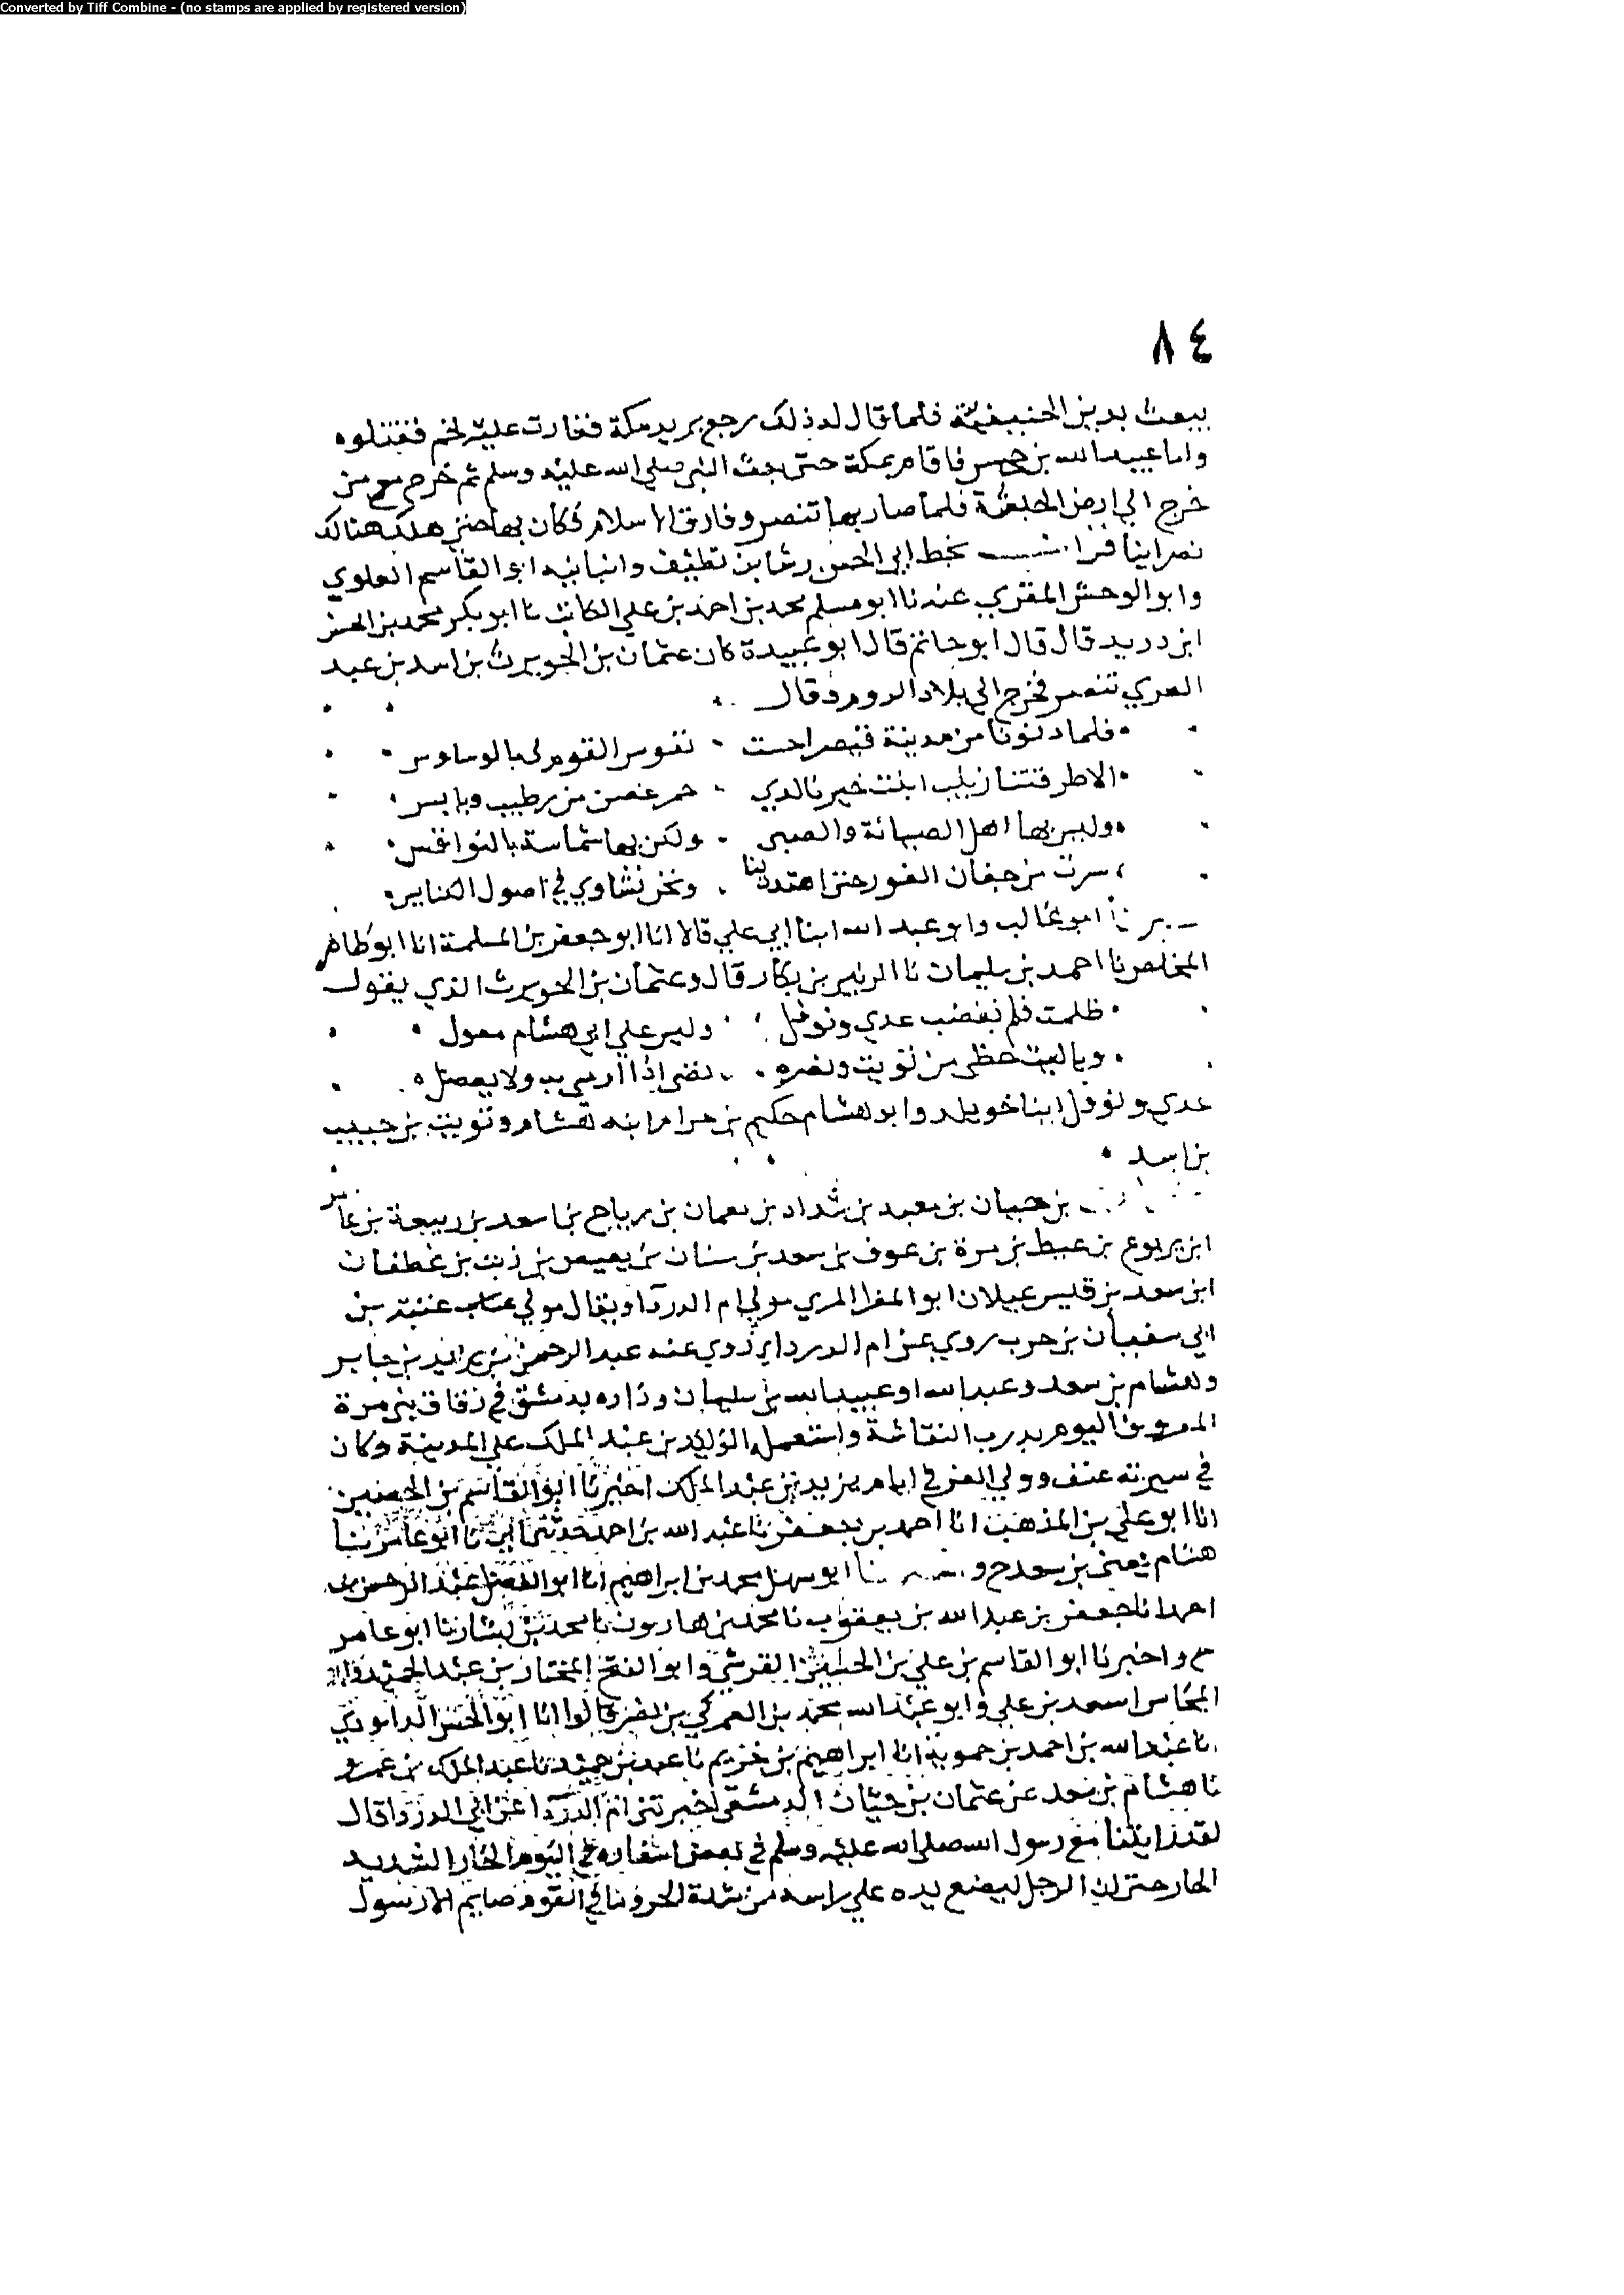 Converted by Tiff Combine - (no stamps are applied by registered version)
٨٤
يبعث بدين الحنيفية فلما قال له ذلك رجع يريد مكة فغارت عليه لخم فقتلوه
واما عبيد الله بن جحش فاقام بمكة حتى بعث النبي صلى الله عليه وسلم ثم خرج مع من
خرج الي ارض الحبشة فلما صار بها تنصر وفارق الاسلام فكان بها حتى هلك هنالك
نصرانيا قرات بخط ابي الحسن رشا بن نظيف وانبانيه ابو القاسم العلوي
وابو الوحش المقري عنه نا ابو مسلم محمد بن احمد بن علي الكاتب نا ابو بكر محمد بن الحسن
ابن دريد قال قال ابو حاتم قال ابو عبيدة كان عثمان بن الحويرث بن اسد بن عبد
العزي تنصر فخرج الي بلاد الروم وقال
فلما دنونا من مدينة قيصر احست نفوس القوم لي بالوساوس
الا طرقتنا زينب ابنت خير نا لدي غصن من رطيب ويابس
وليس بها اهل الصبابة والصبى ولكن بها شماسة بالنواقس
سرت من جفان الغور حتى اهتدت لنا ونحن نشاوي في اصول الكنايس
ابو غالب وابو عبد الله ابنا ابي علي قالا انا ابو جعفر بن المسلمة انا ابو طاهر
المخلص نا احمد بن سليمان نا الزبير بن بكار قال وعثمان بن الحويرث الذي يقول
ظلمت فلم تغضب عدي ونوفل وليس علي ابي هشام معول
ويا ليت حظي من تويت ونصره اذا ارمي به ولا
عدي ونوفل ابنا خويلد وابو هشام حكيم بن حزام ابنه هشام وتويت بن حبيب
بن اسد
بن حيان بن معبد بن شداد بن نعمان بن رياح بن اسعد بن ربيعة بن عامر
ابن يربوع بن غيظ بن مرة بن عوف بن سعد بن سنان بن بغيض بن ريث بن غطفان
ابن سعد بن قيس عيلان ابو المغرا المري مولي ام الدردا ويقال مولي عتبة بن
ابي سفيان بن حرب روي عن ام الدرداء روي عنه عبد الرحمن بن يزيد بن جابر
وهشام بن سعد وعبد الله او عبيد الله بن سليمان وداره بدمشق في زقاق بني مرة
المعروف اليوم بدرب النقاشة واستعمله الوليد بن عبد الملك علي المدينة وكان
في سيرته عنف وولي الغزو في ايام يزيد بن عبد الملك اخبرنا ابو القاسم بن الحصين
انا ابو علي بن المذهب انا احمد بن جعفر نا عبد الله بن احمد حدثني ابي نا ابو عامر نا
هشام يعني بن سعد ح و نا ابو سهل محمد بن ابراهيم انا ابو الفضل عبد الرحمن بن
احمد انا جعفر بن عبد الله بن يعقوب نا محمد بن هارون نا محمد بن بشار نا ابو عامر
ح واخبرنا ابو القاسم بن علي بن الحسين القرشي وابو الفتح المختار بن عبد الحميد وابو
المحاسن اسعد بن علي وابو عبد الله محمد بن العمركي بن نصر قالوا انا ابو الحسن الداودي
انا عبد الله بن احمد بن حموية انا ابراهيم بن خزيم نا عبد بن حميد نا عبد الملك بن عمرو
نا هشام بن سعد عن عثمان بن حيان الدمشقي اخبرتني ام الدردا عن ابي الدردا قال
لقد رايتنا مع رسول الله صلى الله عليه وسلم في بعض اسفاره في اليوم الحار الشديد
الحار حتى ان الرجل ليضع يده علي راسه من شدة الحر وما في القوم صايم الا رسول